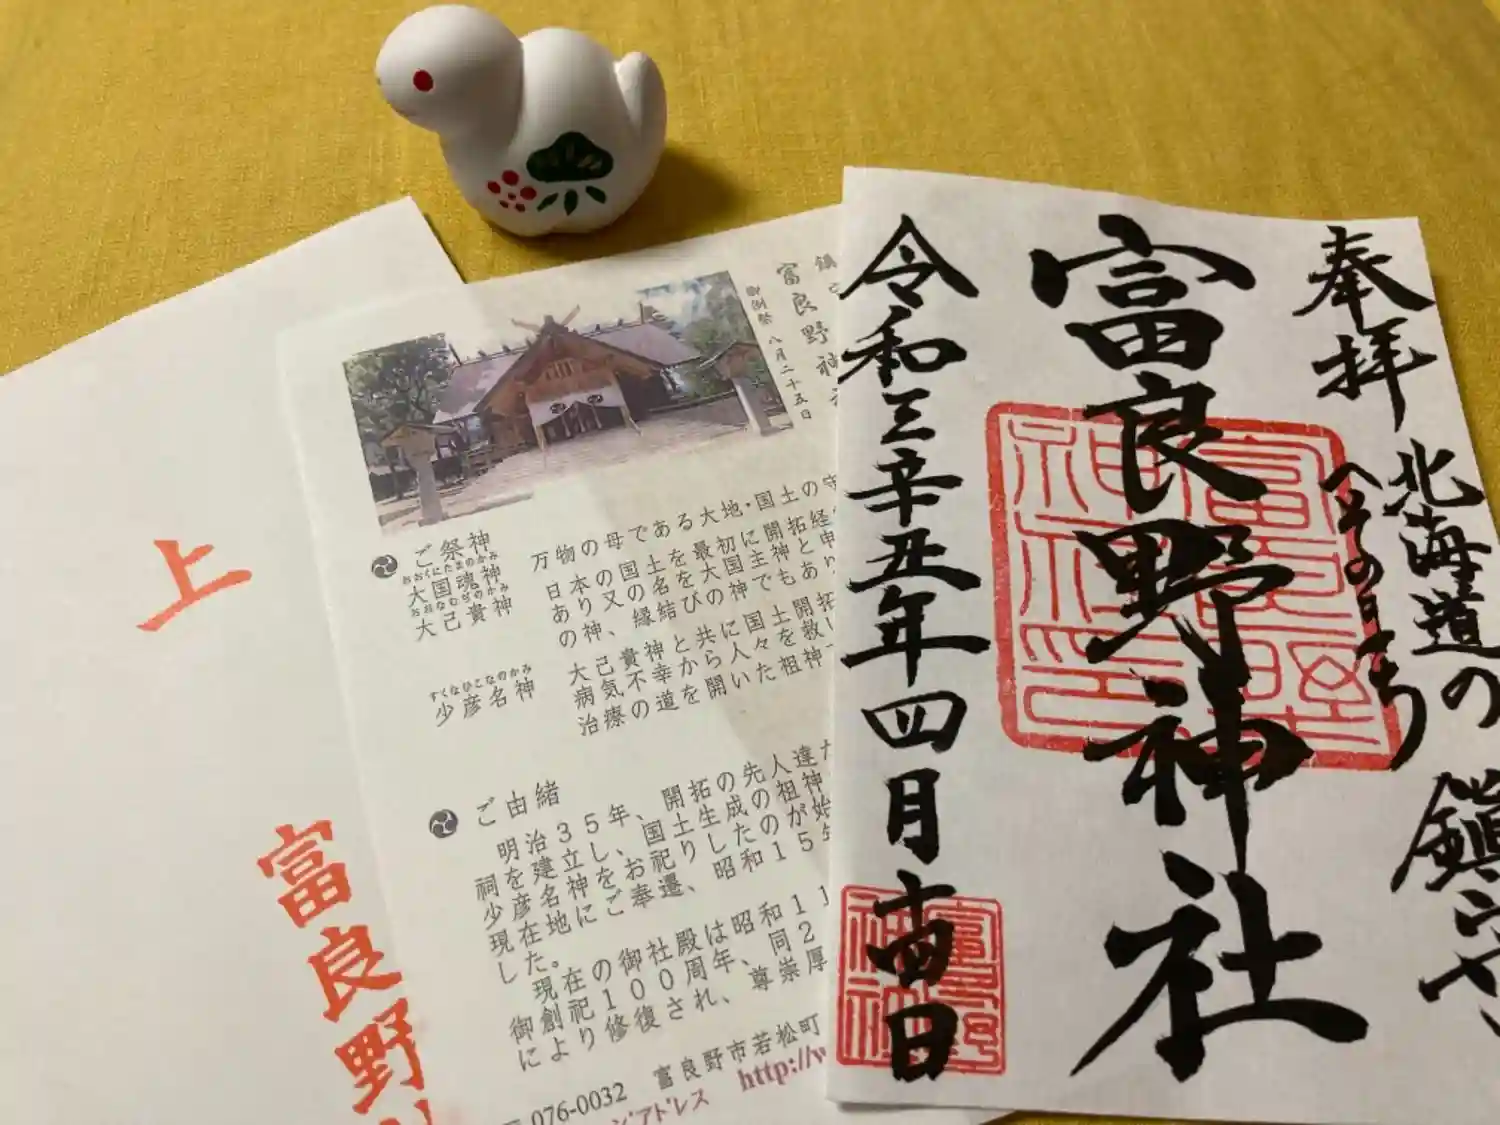 奉拝
北海道の
へそのまち
鎮守さ
富良野神社
令和三辛丑年四月
日
富良野
神社印
上
富良野
富良野神
御例祭 八月二十五日
ご祭神
おおくにたまのかみ
大国魂神
おおなむぢのかみ
大己貴神
すくなひこなのかみ
少彦名神
万物の母である大地・国土の守
日本の国土を最初に開拓経
あり、又、名をび大国主神と申
の神、縁結びの神でもあり
大己貴神と共に国土開拓
病気不幸から人々を救い
治療の道を開いた祖神
ご由緒
明治35年、開拓の先人達が
祠を建立し、国土生成の祖神
少彦名神をお祀りした のが始
現在地にご奉遷、昭和15年
した。
現在の御社殿は昭和1
御創祀100周年、同2
により修復され、尊崇厚
076-0032 富良野市若松町
アドレス http://w